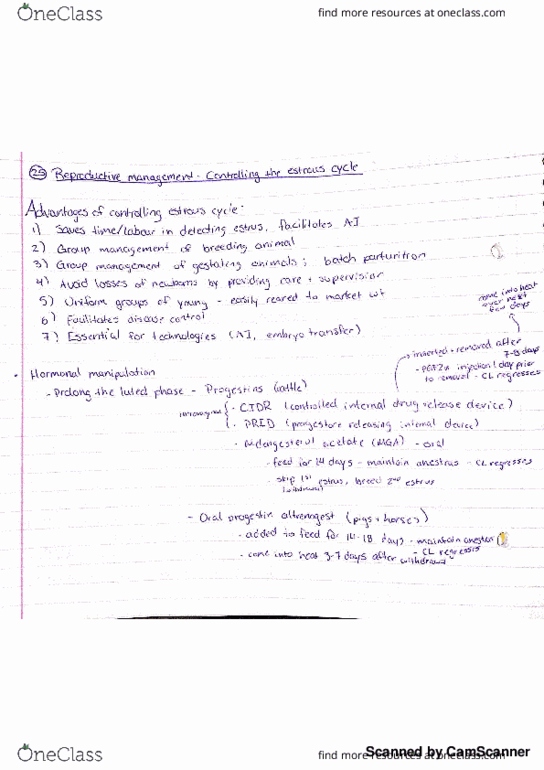 OneClass
find more resources at oneclass.com
25 Reproductive management - Controlling the estrous cycle
Advantages of controlling estrous cycle:
1) Saves time/labour in detecting estrus, facilitates AI
2) Group management of breeding animal
3) Group management of gestating animals; batch parturition
4) Avoid losses of newborns by providing care + supervision
5) Uniform groups of young - easily reared to market wt
6) Facilitates disease control
7) Essential for technologies (AI, embryo transfer)
come into heat
over next
few days
inserted + removed after
7-8 days
- PGF2α injection 1 day prior
to removal - CL regresses
Hormonal manipulation
- Prolong the luteal phase - Progestins (cattle)
- CIDR (controlled internal drug release device)
- PRID (progesterone releasing internal device)
acetate (MGA) - oral
- feed for 14 days - maintain anestrus - CL regresses
- skip 1st estrus, breed 2nd estrus
- Oral progestin altrenogest (pigs + horses)
- added to feed for 14-18 days - maintain anestrus
- CL regresses
- come into heat 3-7 days after withdrawal
OneClass
find more resources at oneclass.com
Scanned by CamScanner